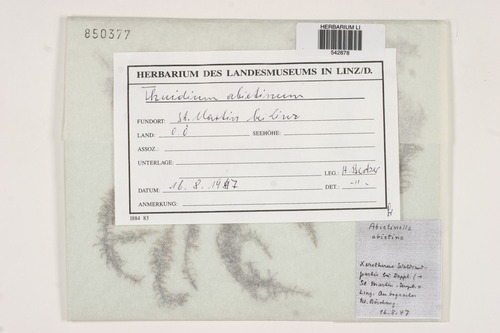 850377
HERBARIUM LI
542878
HERBARIUM DES LANDESMUSEUMS IN LINZ/D.
Thuidium abietinum
FUNDORT: St. Martin b. Linz
LAND: OÖ SEEHÖHE:
ASSOZ.:
UNTERLAGE:
LEG.: H. Becker
DATUM: 16. 8. 1947 DET.: -"-
ANMERKUNG:
I884 83
Abietinella
abietina
Xerotherme
bei
St. Martin
16.8.47